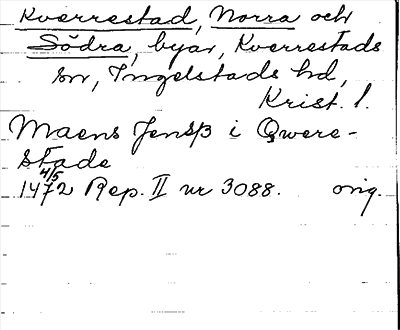 Kverrestad, Norra och
Södra, byar, Kverrestads
sn, Ingelstads hd,
Krist. l.
Maens Jenss i Qwere-
stade
4/5
1472 Rep. II nr 3088. orig.